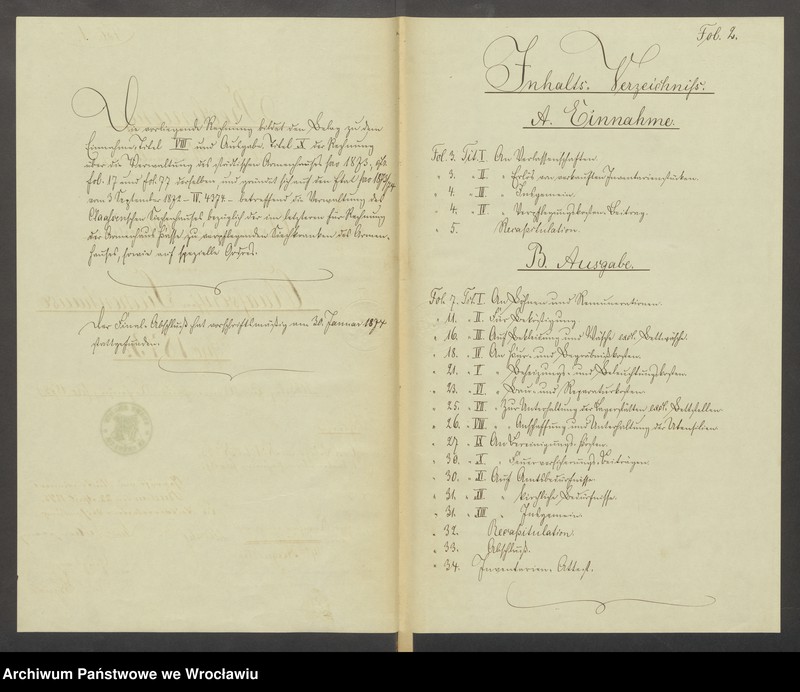 Die vorliegende Rechnung bildet den Belag zu dem
Einnahme-Titel VIII und Ausgabe-Titel X der Rechnung
über die Verwaltung des städtischen Armenhauses pro 1873,
fol. 17 und fol. 77 derselben und gründet sich auf den Etat pro 1872/74
vom 3 September 1872 – betreffend die Verwaltung des
Claassenschen Siechenhauses bezüglich der im letzteren für Rechnung
der Armenhaus zu verpflegenden Siechkranken des Armen-
hauses, sowie auf spezielle Ordres.
Der Final-Abschluß hat vorschriftsmäßig am 30. Januar 1874
stattgefunden.
Fol. 2.
Inhalts-Verzeichniß.
A. Einnahme.
Fol. 3. Tit. I. An Verlassenschaften
" 3. " II. " Erlös von verkauften Inventarienstücken.
" 4. " III. " Insgemein.
" 4. " IV. " Verpflegungskosten-Beitrag.
" 5. Recapitulation.
B. Ausgabe.
Fol. 7. Tit. I. An Löhnen und Remunerationen.
" 11. " II. Für Beköstigung
" 16. " III. Auf Bekleidung und Wäsche excl. Bettwäsche.
" 18. " IV. An Kur- und Begräbnißkosten.
" 21. " V. " Beheizungs- und Beleuchtungskosten.
" 23. " VI. " Bau- und Reparaturkosten.
" 25. " VII. " Zur Unterhaltung der Lagerstätten, excl. Bettstellen
" 26. " VIII. " " Anschaffung und Unterhaltung der Utensilien
" 27. " IX. An Reinigungs-Kosten.
" 30. " X. " Feuerversicherungs-Beiträgen.
" 30. " XI. Auf Amtsbedürfnisse.
" 31. " XII. " kirchliche Bedürfnisse.
" 31. " XIII. " Insgemein.
" 32. Recapitulation.
" 33. Abschluß.
" 34. Inventarien-Attest.
Archiwum Państwowe we Wrocławiu